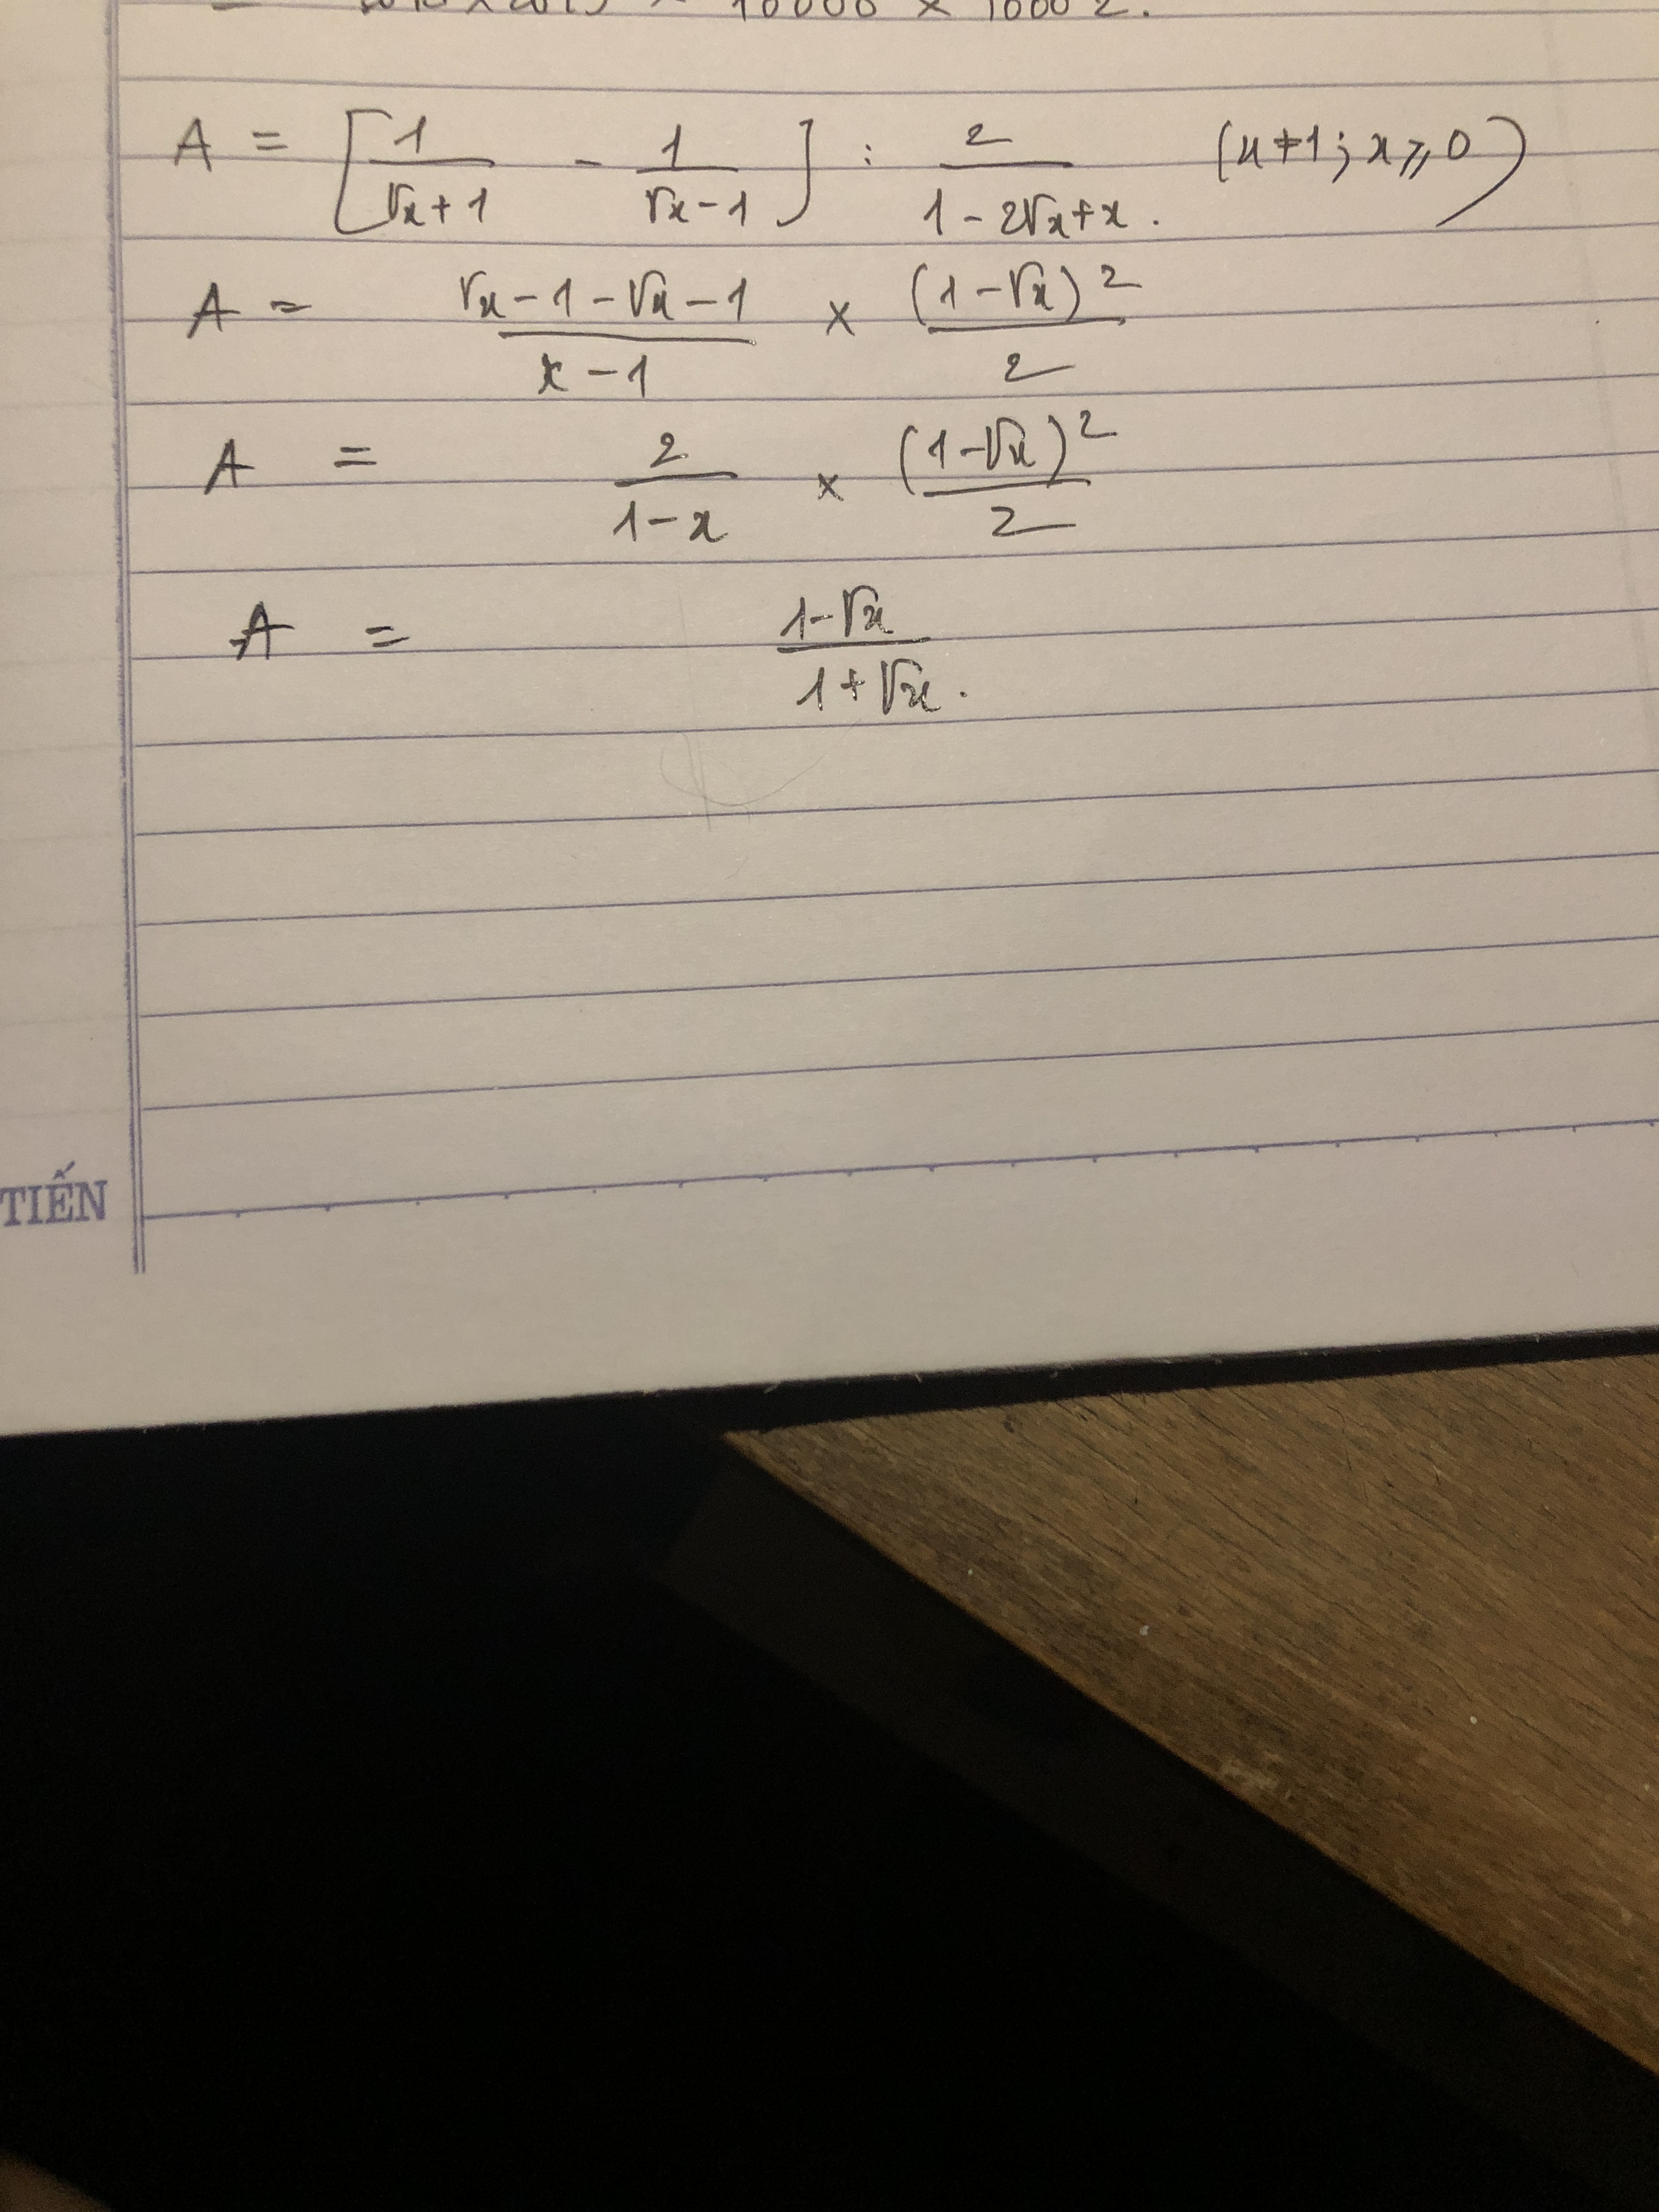 = × 10000 × 10002.
A = [1/(√x+1) - 1/(√x-1)] : 2/(1-2√x+x). (x≠1; x≥0)
A = (√x-1-√x-1)/(x-1) × (1-√x)²/2
A = 2/(1-x) × (1-√x)²/2
A = (1-√x)/(1+√x).
TIẾN